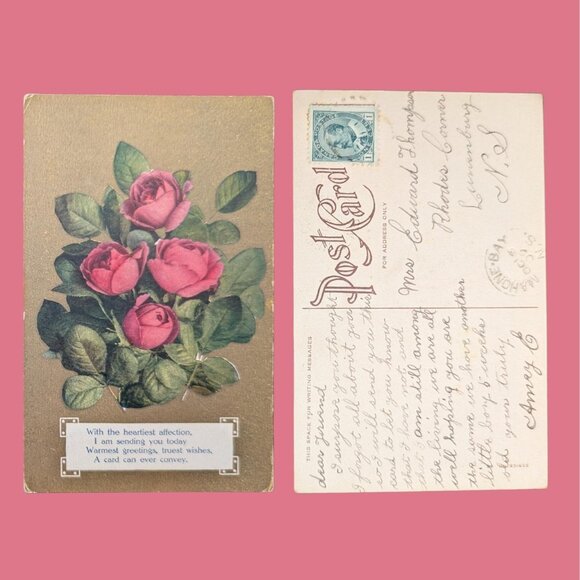 With the heartiest affection,
I am sending you today
Warmest greetings, truest wishes,
A card can ever convey.
Post Card
FOR ADDRESS ONLY
Mrs Edward Thompson
Rhodes Corner
Lunenburg
N. S
THIS SPACE FOR WRITING MESSAGES
dear Freind
I suppose you thought
I forgot all about you
will send you this
card to let you know
that I have not and
am still among
the living we are all
well hoping you are
the same we have another
little boy 5 weeks
old yours truly
Amey E